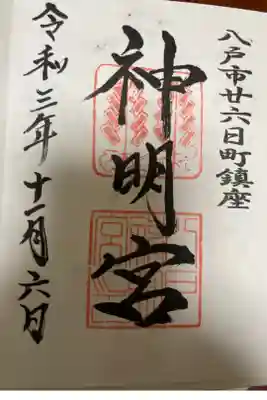 八戸市廿六日町鎮座
神明宮
令和三年十一月六日